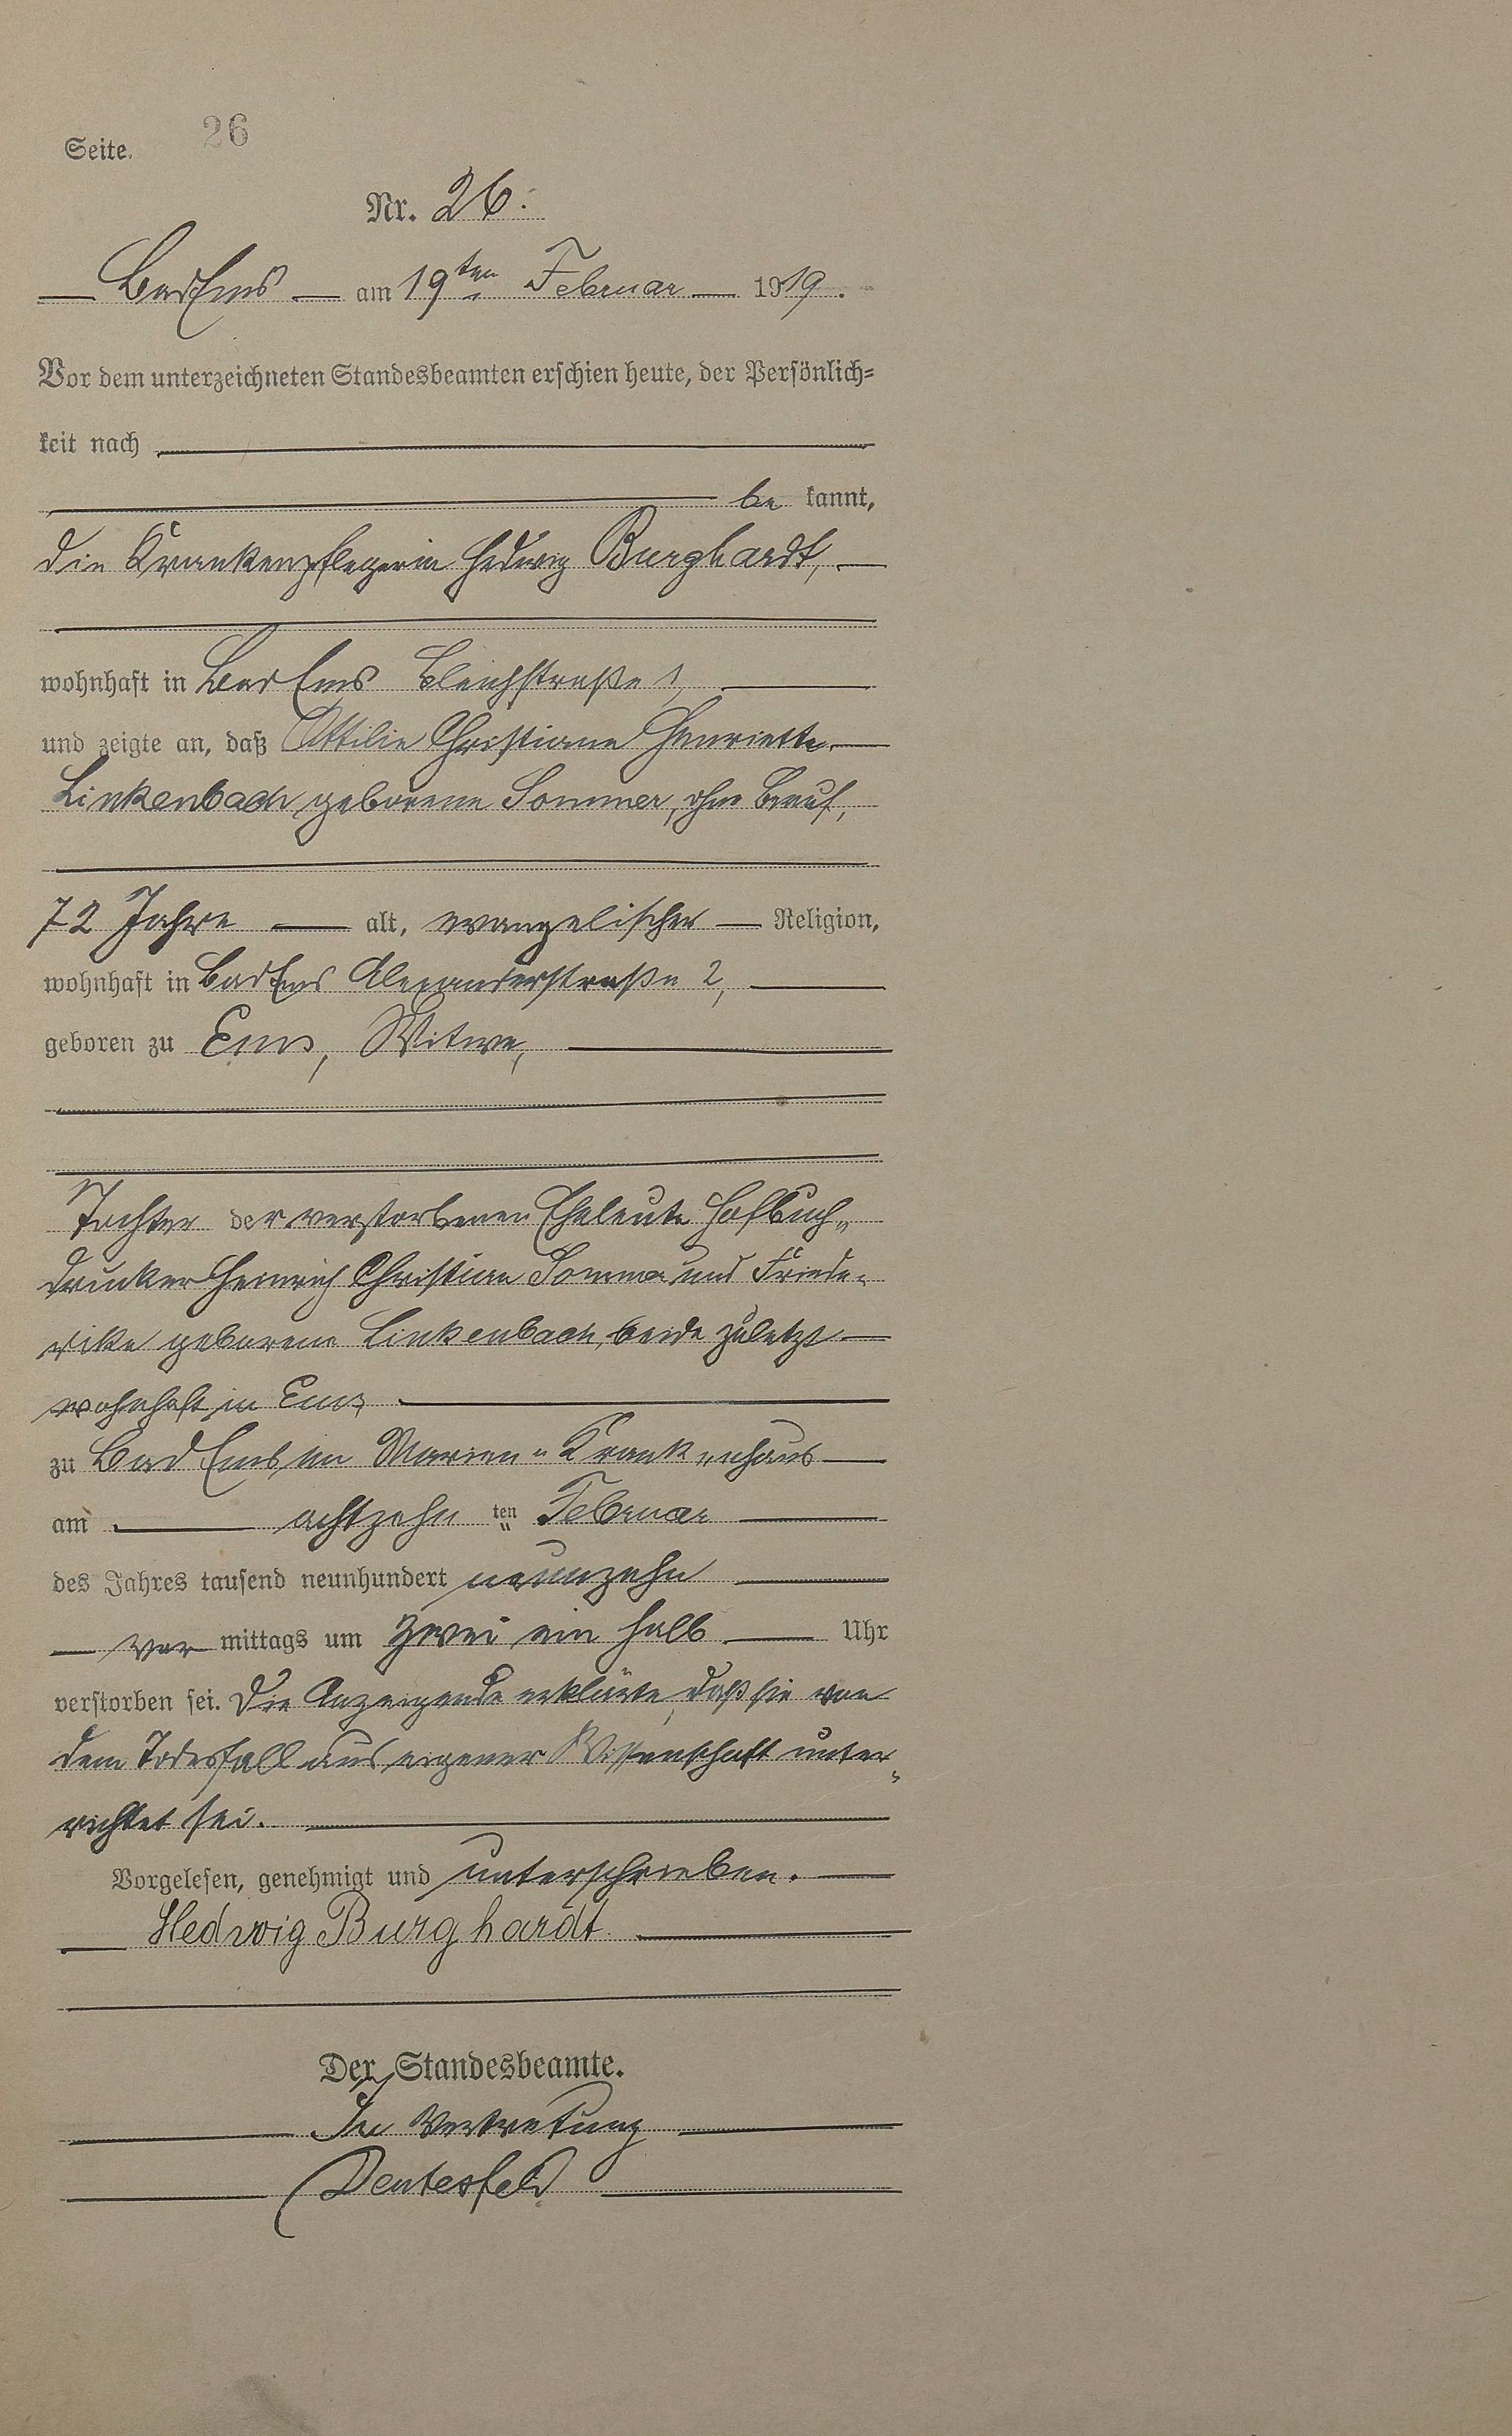 Seite. 26
Nr. 26.
Bad Ems am 19ten Februar 1919.
Vor dem unterzeichneten Standesbeamten erschien heute, der Persönlich-
keit nach
be kannt,
die Krankenpflegerin Hedwig Burghardt,
wohnhaft in Bad Ems Bleichstraße 1,
und zeigte an, daß Ottilie Christiane Henriette
Linkenbach geborene Sommer, ohne Beruf,
72 Jahre alt, evangelischer Religion,
wohnhaft in Bad Ems Alexanderstraße 2,
geboren zu Ems, Witwe,
Tochter der verstorbenen Eheleute Hofbuch-
drucker Heinrich Christian Sommer und Friede-
rike geborene Linkenbach, beide zuletzt
wohnhaft in Ems
zu Bad Ems im Marien-Krankenhaus
am achtzehn ten Februar
des Jahres tausend neunhundert neunzehn
vor mittags um zwei ein halb Uhr
verstorben sei. Die Anzeigende erklärte, daß sie von
dem Todesfall aus eigener Wissenschaft unter-
richtet sei.
Vorgelesen, genehmigt und unterschrieben.
Hedwig Burghardt.
Der Standesbeamte.
In Vertretung